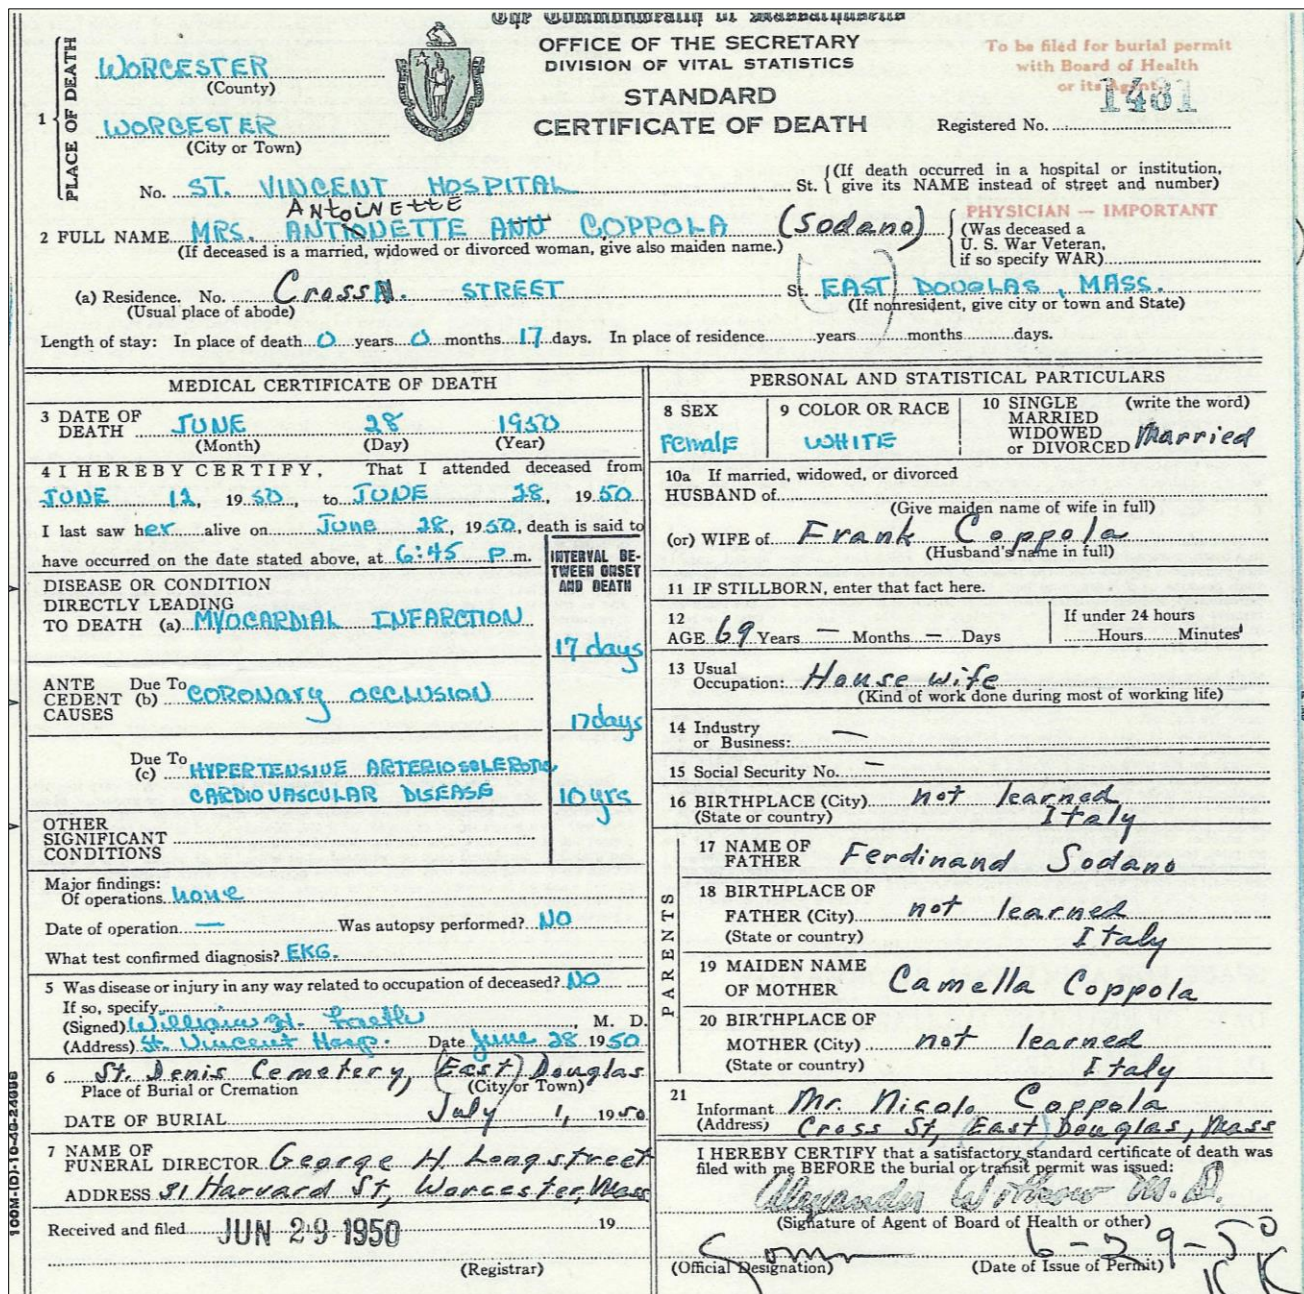 The Commonwealth of Massachusetts
OFFICE OF THE SECRETARY
DIVISION OF VITAL STATISTICS
STANDARD
CERTIFICATE OF DEATH
To be filed for burial permit
with Board of Health
or its Agent.
Registered No. 1481
1 PLACE OF DEATH
WORCESTER
(County)
WORCESTER
(City or Town)
No. ST. VINCENT HOSPITAL St. (If death occurred in a hospital or institution,
give its NAME instead of street and number)
ANToINEttE
2 FULL NAME MRS. ANTIONETTE ANN COPPOLA (Sodano)
(If deceased is a married, widowed or divorced woman, give also maiden name.)
PHYSICIAN — IMPORTANT
(Was deceased a
U. S. War Veteran,
if so specify WAR)
(a) Residence. No. Cross STREET St. (EAST) DOUGLAS, MASS.
(Usual place of abode) (If nonresident, give city or town and State)
Length of stay: In place of death 0 years 0 months 17 days. In place of residence years months days.
MEDICAL CERTIFICATE OF DEATH
3 DATE OF
DEATH JUNE 28 1950
(Month) (Day) (Year)
4 I HEREBY CERTIFY, That I attended deceased from
JUNE 12, 1950, to JUNE 28, 1950
I last saw her alive on June 28, 1950, death is said to
have occurred on the date stated above, at 6:45 P.m.
INTERVAL BE-
TWEEN ONSET
AND DEATH
DISEASE OR CONDITION
DIRECTLY LEADING
TO DEATH (a) MYOCARDIAL INFARCTION
17 days
ANTE Due To
CEDENT (b) CORONARY OCCLUSION
CAUSES
17 days
Due To
(c) HYPERTENSIVE ARTERIOSCLEROTIC
CARDIOVASCULAR DISEASE 10 yrs
OTHER
SIGNIFICANT
CONDITIONS
Major findings:
Of operations none
Date of operation — Was autopsy performed? NO
What test confirmed diagnosis? EKG.
5 Was disease or injury in any way related to occupation of deceased? NO
If so, specify
(Signed) William H. M. D.
(Address) St. Vincent Hosp. Date June 28 1950
6 St. Denis Cemetery, (East) Douglas
Place of Burial or Cremation (City or Town)
DATE OF BURIAL July 1, 1950
7 NAME OF
FUNERAL DIRECTOR George H Longstreet
ADDRESS 31 Harvard St, Worcester, Mass
Received and filed JUN 29 1950 19
(Registrar)
100M-(D)-10-48-24698
PERSONAL AND STATISTICAL PARTICULARS
8 SEX
Female
9 COLOR OR RACE
WHITE
10 SINGLE (write the word)
MARRIED
WIDOWED
or DIVORCED Married
10a If married, widowed, or divorced
HUSBAND of
(Give maiden name of wife in full)
(or) WIFE of Frank Coppola
(Husband's name in full)
11 IF STILLBORN, enter that fact here.
12
AGE 69 Years — Months — Days
If under 24 hours
Hours Minutes
13 Usual
Occupation: House wife
(Kind of work done during most of working life)
14 Industry
or Business: —
15 Social Security No. —
16 BIRTHPLACE (City) not learned
(State or country) Italy
PARENTS
17 NAME OF
FATHER Ferdinand Sodano
18 BIRTHPLACE OF
FATHER (City) not learned
(State or country) Italy
19 MAIDEN NAME
OF MOTHER Camella Coppola
20 BIRTHPLACE OF
MOTHER (City) not learned
(State or country) Italy
21
Informant Mr. Nicolo Coppola
(Address) Cross St, (East) Douglas, Mass
I HEREBY CERTIFY that a satisfactory standard certificate of death was
filed with me BEFORE the burial or transit permit was issued:
Alexander M.D.
(Signature of Agent of Board of Health or other)
6-29-50
(Official Designation) (Date of Issue of Permit)
KK